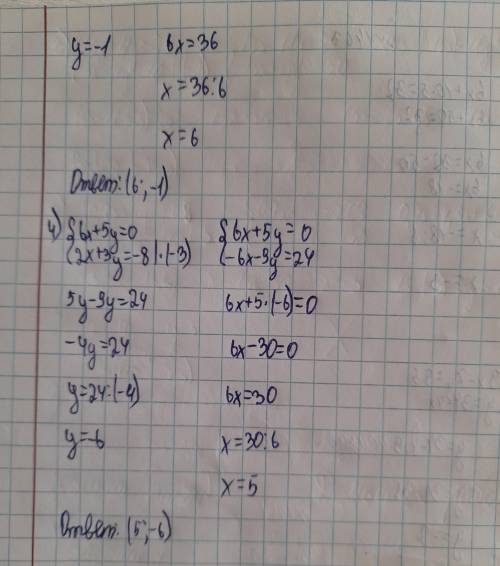 y=-1 6x=36
x=36:6
x=6
Ответ: (6; -1)
4) {6x+5y=0 {6x+5y=0
{2x+3y=-8|·(-3) {-6x-9y=24
5y-9y=24 6x+5·(-6)=0
-4y=24 6x-30=0
y=24:(-4) 6x=30
y=-6 x=30:6
x=5
Ответ: (5; -6)